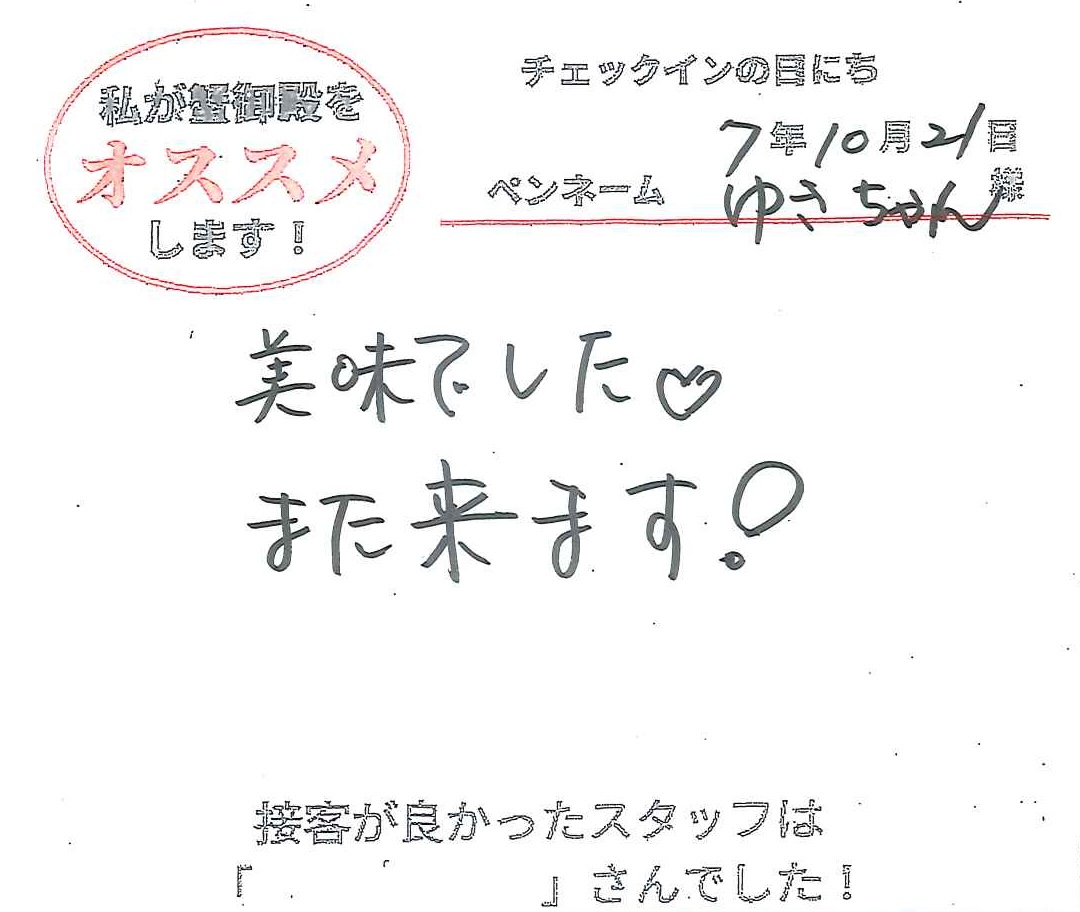 私が蟹御殿を
オススメ
します!
チェックインの日にち
7年10月21日
ペンネーム ゆきちゃん様
美味でした♡
また来ます!
接客が良かったスタッフは
「 」さんでした!